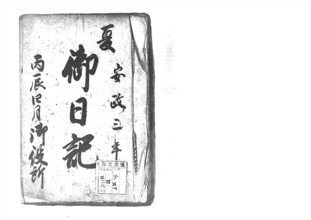 安政三年
夏
御日記
丙辰四月御役所